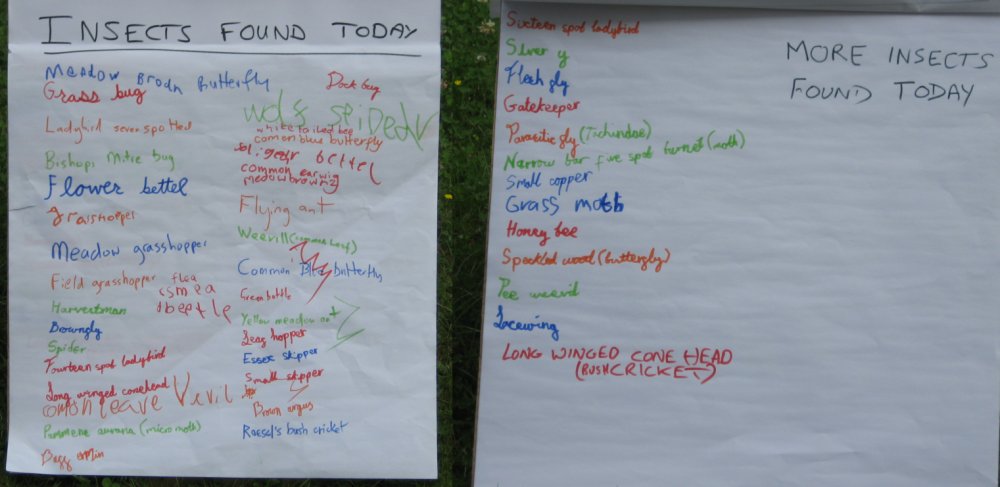 INSECTS FOUND TODAY
Meadow Brodn Butterfly
Grass bug
Ladybird seven spotted
Bishops Mitre bug
Flower bettel
grasshoeper
Meadow grasshopper
Field grasshopper flea
beetle
Harvestman
Brownfly
Spider
Fourteen spot ladybird
Long winged conehead
comon leave Vevil
Pammene aurana (micro moth)
Dock bug
wolf speider
white tailed bee
comon blue butterfly
bettel
common earwig
medow brown
Flying ant
Weevill (common leaf)
Common Blue butterfly
Green bottle
Yellow meadow ant
Leaf hopper
Essex skipper
Small skipper
Brown argus
Roesel's bush cricket
MORE INSECTS
FOUND TODAY
Sixteen spot ladybird
Silver y
Flesh fly
Gatekeeper
Parasitic fly (Tichindae)
Narrow bar five spot burnet (moth)
Small copper
Grass moth
Honey bee
Speckled wood (butterfly)
Pee weevil
Lacewing
LONG WINGED CONE HEAD
(BUSH CRICKET)